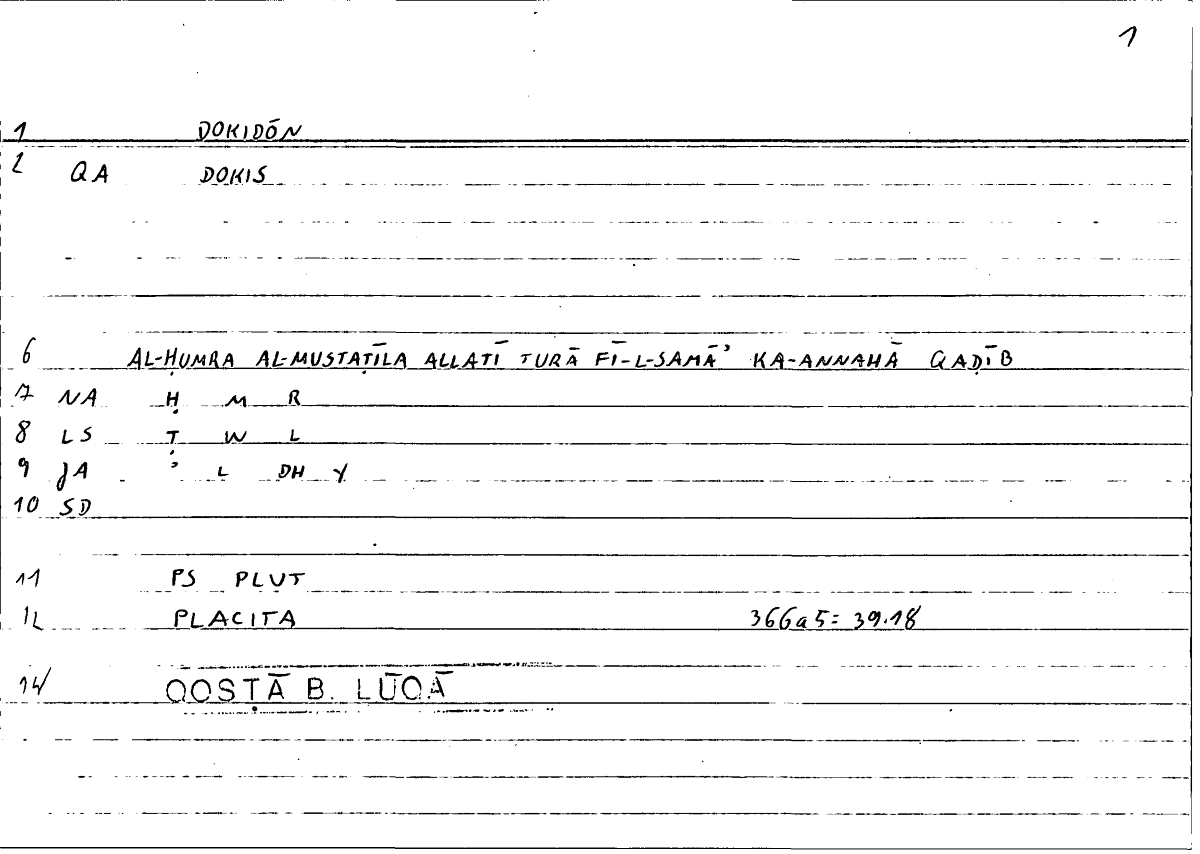 1
1 DOKIDŌN
2 QA DOKIS
6 AL-ḤUMRA AL-MUSTAṬĪLA ALLATĪ TURĀ FĪ-L-SAMĀʾ KA-ANNAHĀ QAḌĪB
7 NA Ḥ M R
8 LS Ṭ W L
9 JA ʾ L DH Y
10 SD
11 PS PLUT
12 PLACITA 366a5= 39.18
14 QOSṬĀ B. LŪQĀ